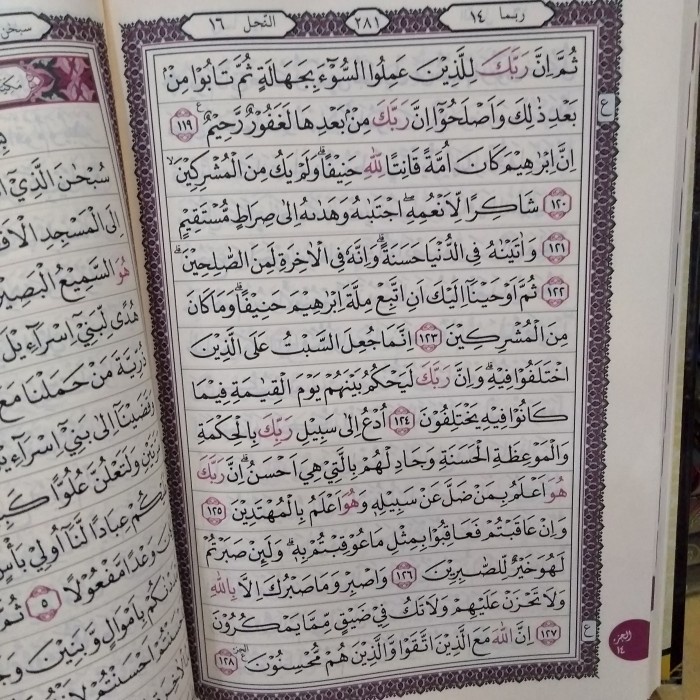 ربما ١٤
٢٨١
النحل ١٦
ثُمَّ اِنَّ رَبَّكَ لِلَّذِيْنَ عَمِلُوا السُّوْۤءَ بِجَهَالَةٍ ثُمَّ تَابُوْا مِنْۢ
بَعْدِ ذٰلِكَ وَاَصْلَحُوْٓا اِنَّ رَبَّكَ مِنْۢ بَعْدِهَا لَغَفُوْرٌ رَّحِيْمٌ ࣖ ١١٩
اِنَّ اِبْرٰهِيْمَ كَانَ اُمَّةً قَانِتًا لِّلّٰهِ حَنِيْفًاۗ وَلَمْ يَكُ مِنَ الْمُشْرِكِيْنَۙ
١٢٠ شَاكِرًا لِّاَنْعُمِهٖۖ اِجْتَبٰىهُ وَهَدٰىهُ اِلٰى صِرَاطٍ مُّسْتَقِيْمٍ
١٢١ وَاٰتَيْنٰهُ فِى الدُّنْيَا حَسَنَةًۗ وَاِنَّهٗ فِى الْاٰخِرَةِ لَمِنَ الصّٰلِحِيْنَۗ
١٢٢ ثُمَّ اَوْحَيْنَآ اِلَيْكَ اَنِ اتَّبِعْ مِلَّةَ اِبْرٰهِيْمَ حَنِيْفًاۗ وَمَا كَانَ
مِنَ الْمُشْرِكِيْنَ ١٢٣ اِنَّمَا جُعِلَ السَّبْتُ عَلَى الَّذِيْنَ
اخْتَلَفُوْا فِيْهِۗ وَاِنَّ رَبَّكَ لَيَحْكُمُ بَيْنَهُمْ يَوْمَ الْقِيٰمَةِ فِيْمَا
كَانُوْا فِيْهِ يَخْتَلِفُوْنَ ١٢٤ اُدْعُ اِلٰى سَبِيْلِ رَبِّكَ بِالْحِكْمَةِ
وَالْمَوْعِظَةِ الْحَسَنَةِ وَجَادِلْهُمْ بِالَّتِيْ هِيَ اَحْسَنُۗ اِنَّ رَبَّكَ
هُوَ اَعْلَمُ بِمَنْ ضَلَّ عَنْ سَبِيْلِهٖ وَهُوَ اَعْلَمُ بِالْمُهْتَدِيْنَ ١٢٥
وَاِنْ عَاقَبْتُمْ فَعَاقِبُوْا بِمِثْلِ مَا عُوْقِبْتُمْ بِهٖۗ وَلَىِٕنْ صَبَرْتُمْ
لَهُوَ خَيْرٌ لِّلصّٰبِرِيْنَ ١٢٦ وَاصْبِرْ وَمَا صَبْرُكَ اِلَّا بِاللّٰهِ
وَلَا تَحْزَنْ عَلَيْهِمْ وَلَا تَكُ فِيْ ضَيْقٍ مِّمَّا يَمْكُرُوْنَ
١٢٧ اِنَّ اللّٰهَ مَعَ الَّذِيْنَ اتَّقَوْا وَّالَّذِيْنَ هُمْ مُّحْسِنُوْنَ ࣖ ١٢٨
الجزء ١٤
سُبْحٰنَ الَّذِيْٓ
اِلَى الْمَسْجِدِ
هُوَ السَّمِيْعُ الْبَصِيْرُ
هُدًى لِّبَنِيْٓ اِسْرَاۤءِيْلَ
ذُرِّيَّةَ مَنْ حَمَلْنَا مَعَ
وَقَضَيْنَآ اِلٰى بَنِيْٓ
وَلَتَعْلُنَّ عُلُوًّا
عِبَادًا لَّنَآ اُولِيْ بَأْسٍ
وَعْدًا مَّفْعُوْلًا ٥ ثُمَّ
بِاَمْوَالٍ وَّبَنِيْنَ